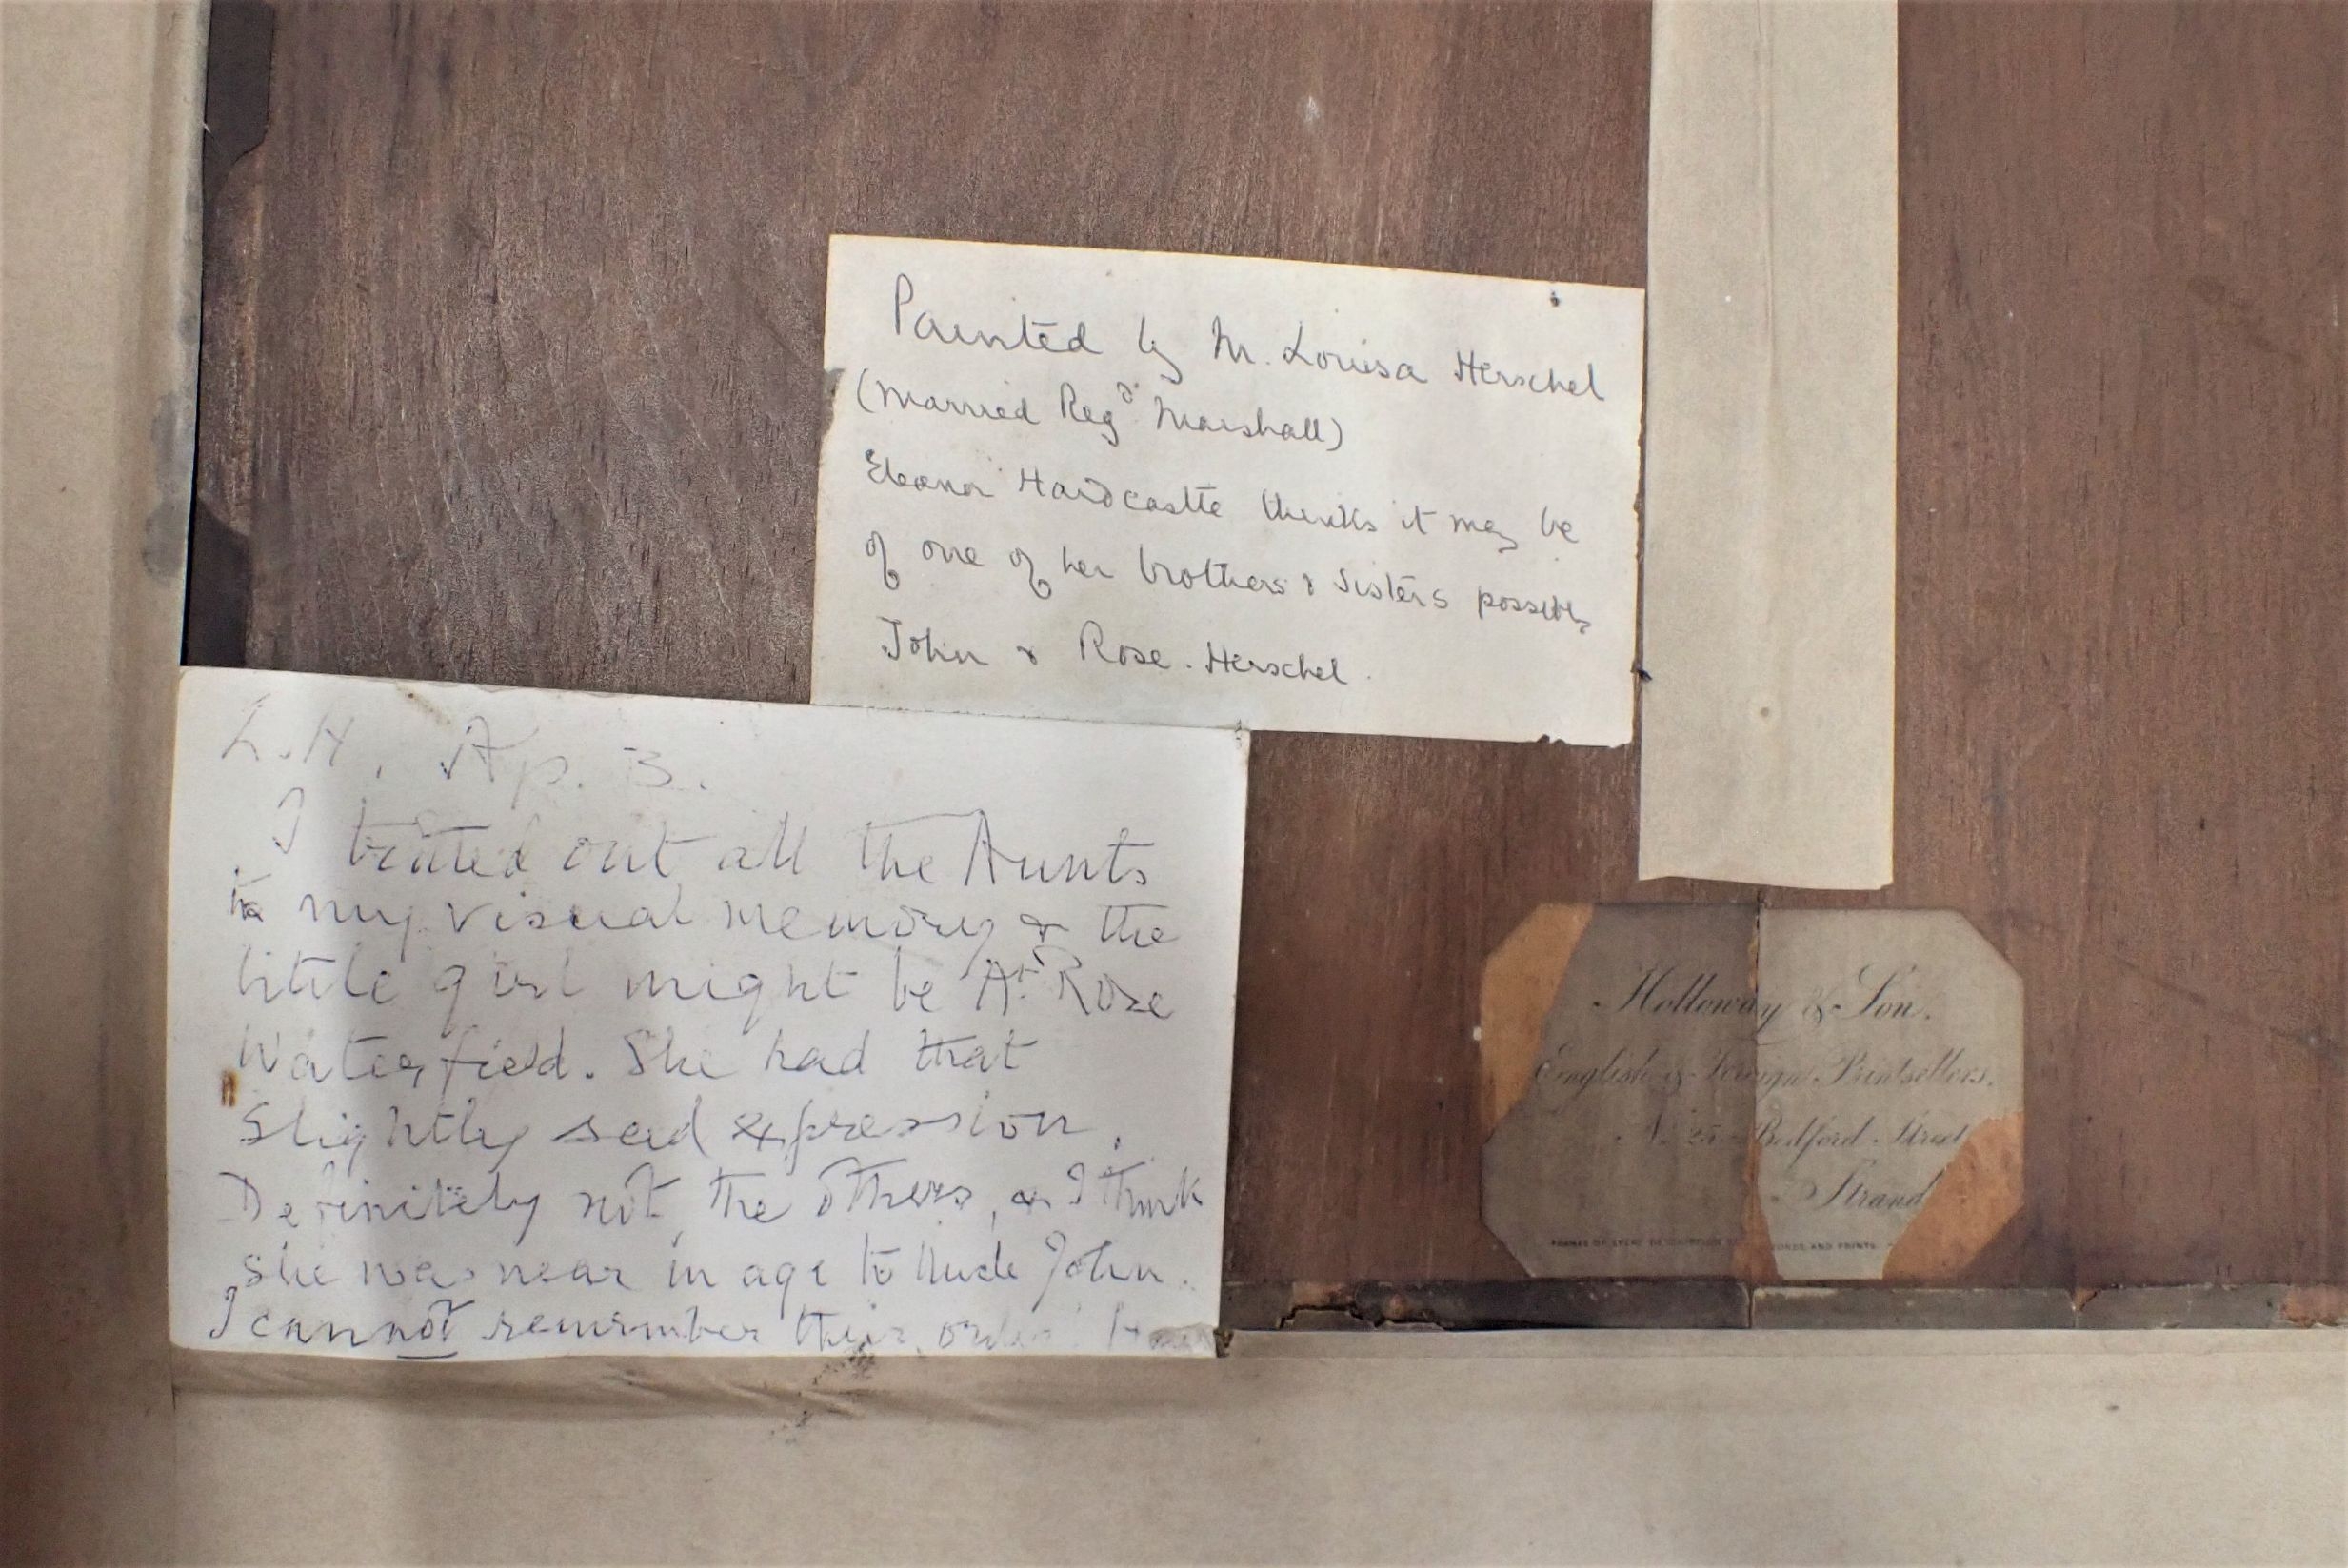 Painted by M. Louisa Herschel
(Married Regd. Marshall)
Eleanor Hardcastle thinks it may be
of one of her brothers & sisters possibly
John & Rose. Herschel.
L.H. Ap. 3.
I trotted out all the Aunts
to my visual memory & the
little girl might be At. Rose
Waterfield. She had that
slightly sad expression.
Definitely not the others, & I think
she was near in age to Uncle John.
I cannot remember their order
Holloway & Son.
English & Foreign Printsellers.
No. 25 Bedford Street
Strand
FRAMES OF EVERY DESCRIPTION AND PRINTS